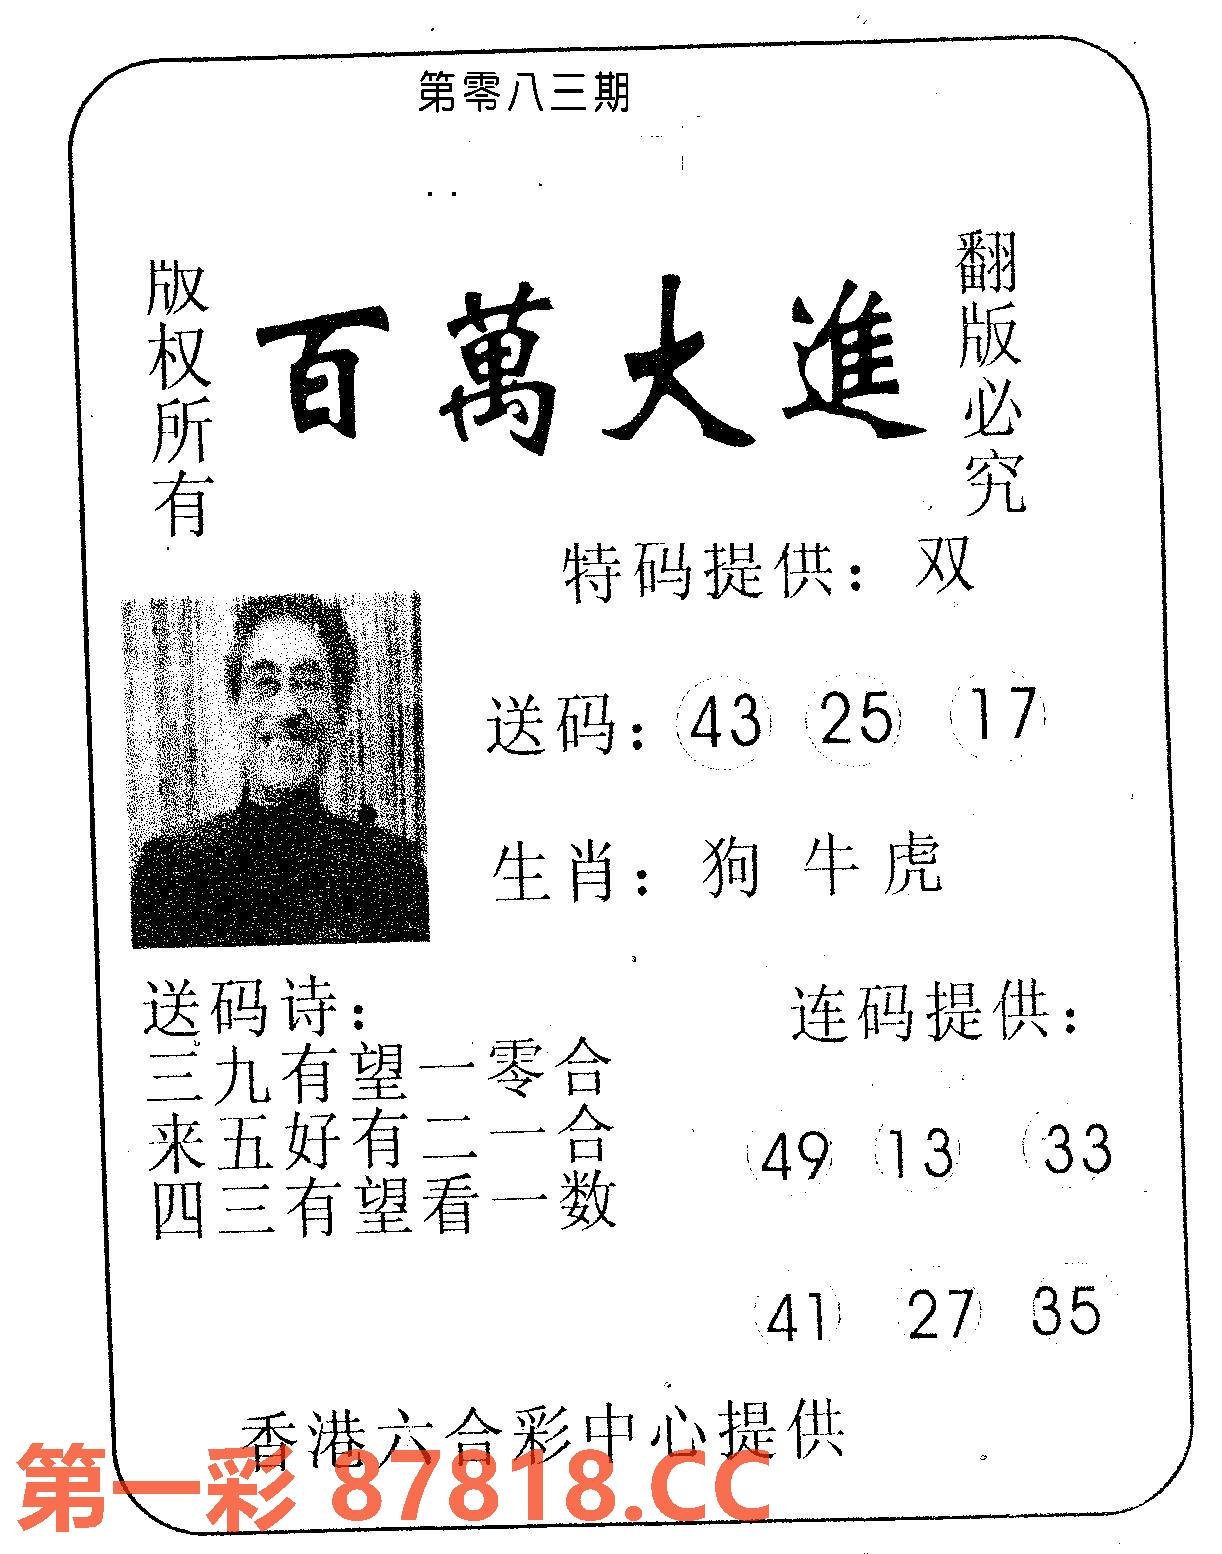 第零八三期
版权所有
百萬大進
翻版必究
特码提供：双
送码：43 25 17
生肖：狗 牛 虎
送码诗：
三九有望一零合
来五好有二一合
四三有望看一数
连码提供：
49 13 33
41 27 35
香港六合彩中心提供
第一彩 87818.CC